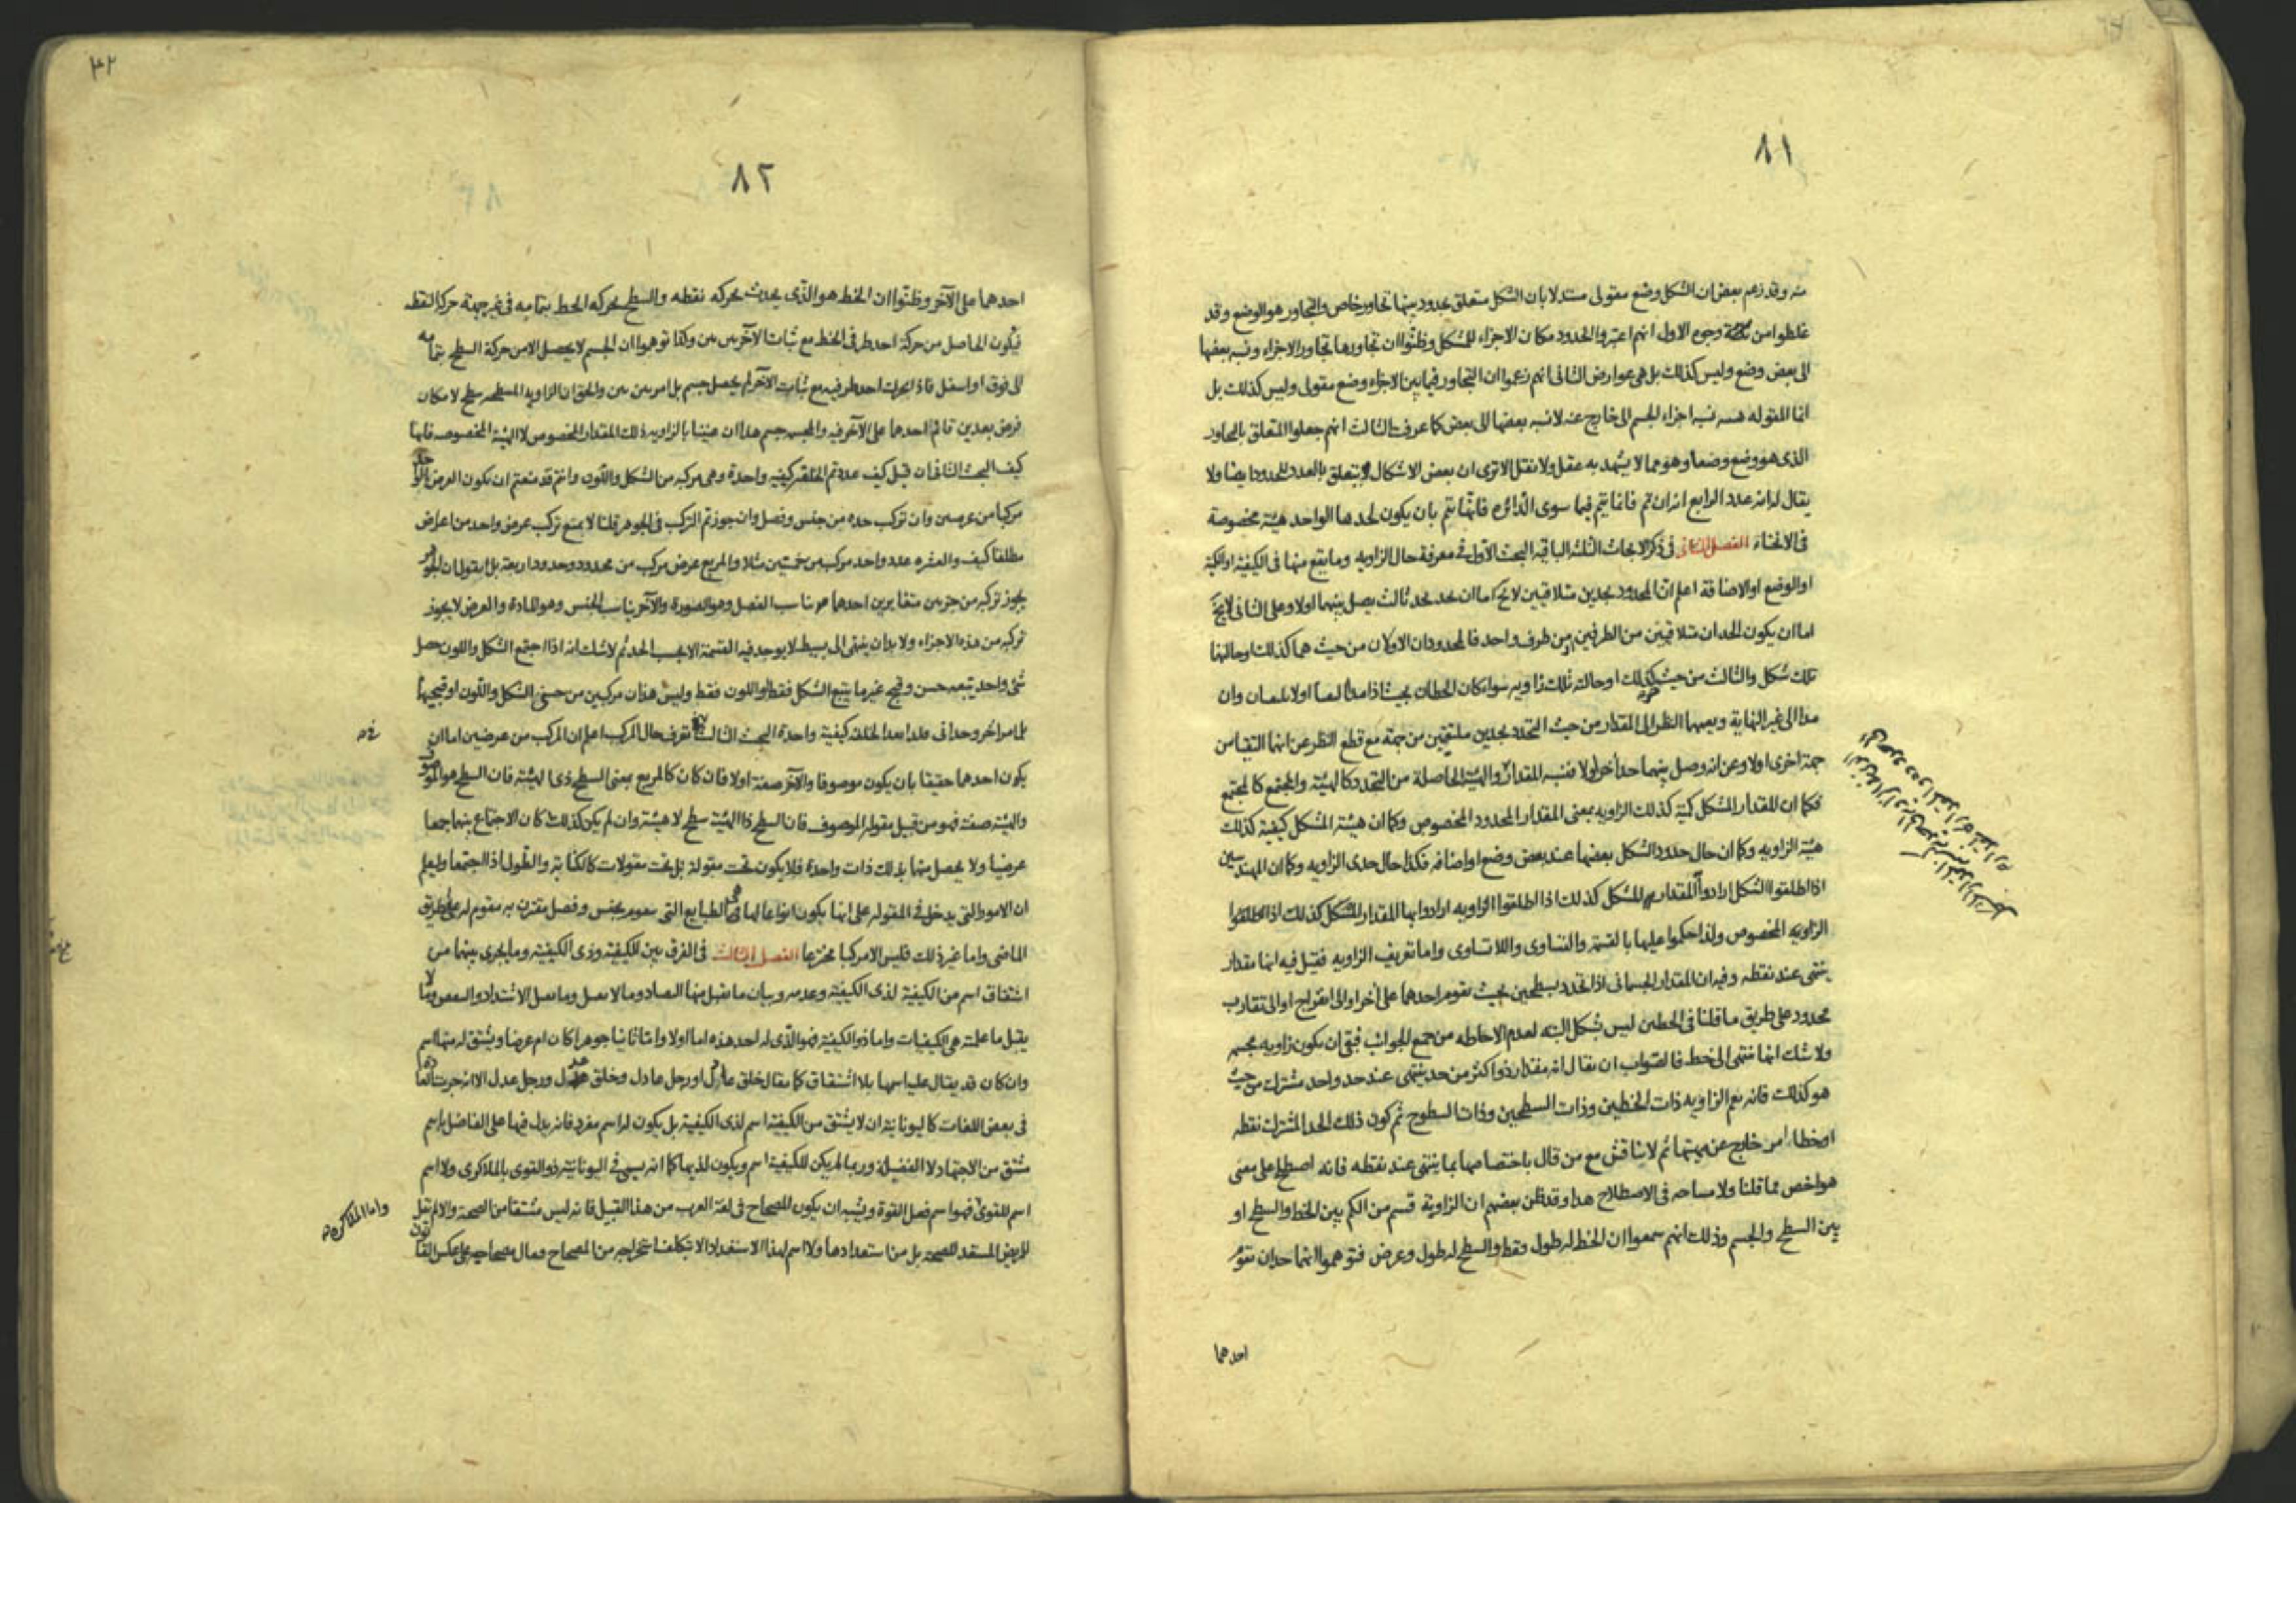 ٨١
منه وقد زعم بعض ان الشكل وضع مقولى مستدلا بان الشكل متعلق بحدود بينها تجاور خاص والتجاور هو الوضع وقد
غلطوا من وجوه الاول انهم اعتبروا الحدود مكان الاجزاء للشكل وظنوا ان تجاورها تجاور الاجزاء ونسبه بعضها
الى بعض وضع وليس كذلك بل هى عوارض الثانى انهم زعموا ان التجاور فيما بين الاجزاء وضع مقولى وليس كذلك بل
انما المقوله نسبه اجزاء الجسم الى خارج عنه لا نسبه بعضها الى بعض كما عرفت الثالث انهم جعلوا المتعلق بالتجاور
الذى هو وضع وضعا وهو مما لا يشهد به عقل ولا نقل الا ترى ان بعض الاشكال يتعلق بالعدد للحدود ايضا ولا
يقال له انه عدد الرابع انه ان تم فانما يتم فيما سوى الدائره فانها تتم بان يكون لحدها الواحد هيئة مخصوصة
فى الانحناء الفصل الثانى فى ذكر الابحاث الثلثه الباقيه البحث الاول فى معرفة حال الزاويه وما يقع منها فى الكيفية او الكمية
او الوضع او الاضافة اعلم ان المحدود بحدين متلاقيين لا يخ اما ان يحد بحد ثالث يصل بينهما اولا وعلى الثانى لا يخ
اما ان يكون الحدان متلاقيين من الطرفين او من طرف واحد فالمحدودان الاولان من حيث هما كذلك او حالتهما
تلك شكل والثالث من حيث هو كذلك او حالته تلك زاويه سواء كان الخطان بحيث اذا مدا لقيا اولا يلتقيان وان
مدا الى غير النهاية وبعبارة النظر الى المقدار من حيث التحدد بحدين ملتقيين من جهة مع قطع النظر عن انهما التقيا من
جهة اخرى اولا وعن انه وصل بينهما حد آخر اولا فنسبه المقدار والهيئة الحاصلة من التحدد كالهيئة والمجتمع كالمجتمع
فكما ان للمقدار المشكل كمية كذلك الزاويه بمعنى المقدار المحدود المخصوص وكما ان هيئة المشكل كيفية كذلك
هيئة الزاويه وكما ان حال حدود الشكل بعضها عند بعض وضع او اضافه فكذا حال حدى الزاويه وكما ان المهندسين
اذا اطلقوا الشكل ارادوا المقدار المشكل كذلك اذا اطلقوا الزاويه ارادوا بها المقدار
الزاويه المخصوص ولذا حكموا عليها بالقسمة والتساوى واللاتساوى واما تعريف الزاويه فقيل فيه انها مقدار
ينتهى عند نقطه وفيه ان المقدار الجسمانى اذا تحدد بسطحين بحيث يقوم احدهما على آخر او الى انفراج او الى تقارب
محدود على طريق ما قلنا فى الخطين ليس بشكل البته لعدم الاحاطه من جميع الجوانب فبقى ان يكون زاويه مجسمه
ولا شك انها تنتهى الى خط فالصواب ان يقال انه مقدار ذو اكثر من حد ينتهى عند حد واحد مشترك من حيث
هو كذلك فانه يعم الزاويه ذات الخطين وذات السطحين وذات السطوح ثم كون ذلك الحد المشترك نقطه
او خطا امر خارج عن مهيتها ثم لا يناقش مع من قال باختصاصها بما ينتهى عند نقطه فانه اصطلح على معنى
هو اخص مما قلنا ولا مساحه فى الاصطلاح هذا وقد ظن بعضهم ان الزاوية قسم من الكم بين الخط والسطح او
بين السطح والجسم وذلك انهم سمعوا ان الخط له طول فقط والسطح له طول وعرض فتوهموا انهما حدان تقوم
احدهما
٣٢
٨٢
احدهما على الآخر وظنوا ان الخط هو الذى يحدث بحركه نقطه والسطح بحركه الخط بتمامه فى غير جهة حركة النقطه
فيكون الحاصل من حركة احد طرفى الخط مع ثبات الآخر بين بين وكذا توهموا ان الجسم لا يحصل الا من حركة السطح بتمامه
الى فوق او اسفل فاذا تحرك احد طرفيه مع ثبات الآخر لم يحصل جسم بل امر بين بين والحق ان الزاويه المسطحه سطح لامكان
فرض بعدين قائم احدهما على الآخر فيه والمجسمه جسم هذا ان عنينا بالزاويه ذلك المقدار المخصوص لا الهيئة المخصوصه فانها
كيف البحث الثانى ان قيل كيف عددتم الخلقه كيفيه واحدة وهى مركبه من الشكل واللون وانتم قد منعتم ان يكون العرض الواحد
مركبا من عرضين وان تركب حده من جنس وفصل وان جوزتم التركب فى الجوهر قلنا لا يمنع تركب عرض واحد من اعراض
مطلقا كيف والعشره عدد واحد مركب من خمستين مثلا والمربع عرض مركب من محدود وحدود اربعة بل نقول ان الجوهر
يجوز تركبه من جزئين متغايرين احدهما يناسب الفصل وهو الصورة والآخر يناسب الجنس وهو المادة والعرض لا يجوز
تركبه من هذه الاجزاء ولا بد ان ينتهى الى بسيط لا يوجد فيه القسمة الا بحسب الحد ثم لا شك انه اذا اجتمع الشكل واللون حصل
شئ واحد يتبعه حسن وقبح غير ما يتبع الشكل فقط او اللون فقط وليس هذان مركبين من حسنى الشكل واللون او قبحيهما
بل امر آخر وحدانى فلذا نعد الخلقه كيفية واحدة البحث الثالث فى تعرف حال المركب اعلم ان المركب من عرضين اما ان
يكون احدهما حقيقا بان يكون موصوفا والآخر صفة اولا فان كان كالمربع بمعنى السطح ذى الهيئة فان السطح هو الموصوف
والهيئة صفة فهو من قبيل مقوله الموصوف فان السطح ذا الهيئة سطح لا هيئة وان لم يكن كذلك كان الاجتماع بينهما جمعا
عرضيا ولا يحصل منهما بذلك ذات واحدة فلا يكون تحت مقولة بل تحت مقولات كالكتابة والطول اذا اجتمعا وليعلم
ان الامور التى يدخل فى المقوله على انها يكون انواعا لها هى الطبايع التى تتقوم بجنس وفصل يقترن به مقوم له على طريق
الماضى واما غير ذلك فليس الا مركبا مخترعا الفصل الثالث فى الفرق بين الكيفيه وذى الكيفيه وما يجرى بينهما من
اشتقاق اسم من الكيفية لذى الكيفية وعدمه وبيان ما يقبل منها التضاد وما لا يقبل وما يقبل الاشتداد والتنقص وما لا
يقبل ما علمته هى الكيفيات واما ذو الكيفية فهو الذى له احد هذه اما اولا واما ثانيا جوهرا كان ام عرضا ويشتق له منها اسم
وان كان قد يقال عليه اسمها بلا اشتقاق كما يقال خلق عادل او رجل عادل وخلق عدل ورجل عدل الا انه جرت العادة
فى بعض اللغات كاليونانية ان لا يشتق من الكيفية اسم لذى الكيفية بل يكون له اسم مفرد فانه يدل فيها على الفاضل باسم
مشتق من الاجتهاد لا الفضيلة وربما لم يكن للكيفية اسم ويكون لذيها كما انه يسمى فى اليونانية ذو القوى بالملاكرى ولا اسم
اسم للقوى فهو اسم فصل القوة ويشبه ان يكون للمصحاح فى لغة العرب من هذا القبيل فانه ليس مشتقا من الصحة والا لم تقل
للمريض المستعد للصحه بل من استعدادها ولا اسم لهذا الاستعداد الا بتكلف استخراجه من المصحاح فيقال مصحاحيه على عكس القانون
واما الملاكرى